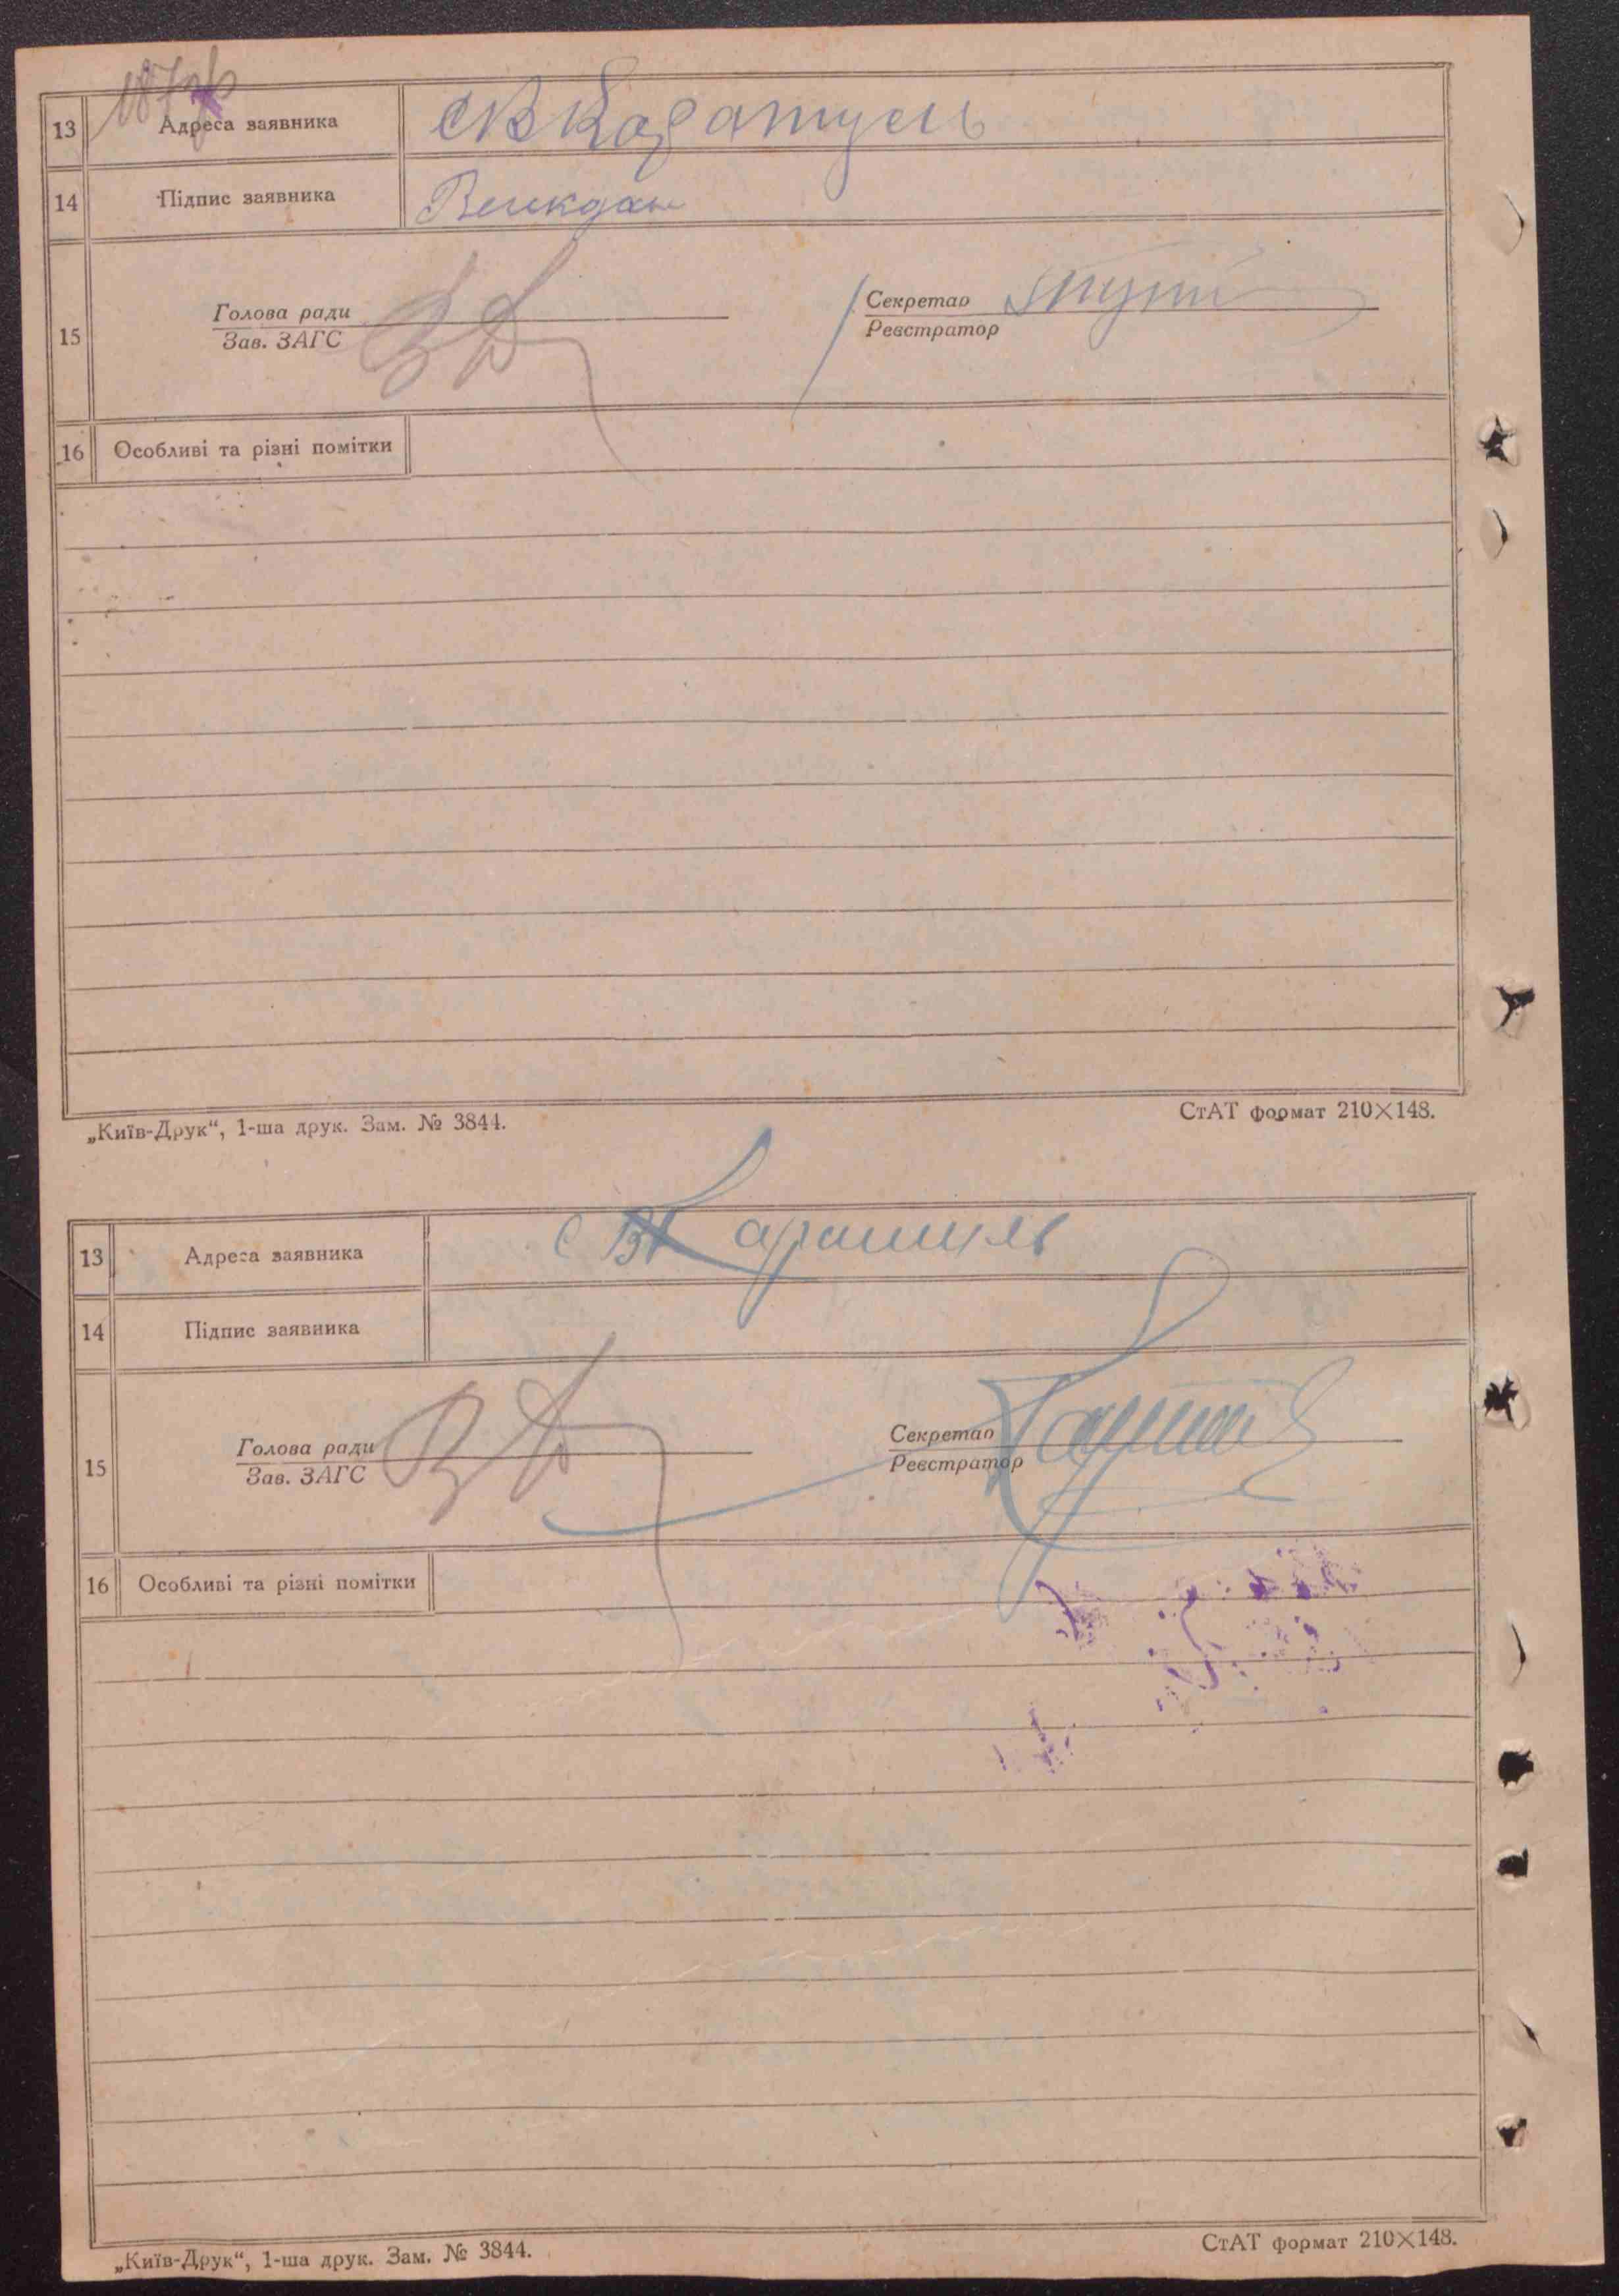 13 Адреса заявника с В Каратуль
14 Підпис заявника
15 Голова ради Секретар
Зав. ЗАГС Реєстратор
16 Особливі та різні помітки
„Київ-Друк“, 1-ша друк. Зам. № 3844. СтАТ формат 210×148.
13 Адреса заявника с В Каратуль
14 Підпис заявника
15 Голова ради Секретар
Зав. ЗАГС Реєстратор
16 Особливі та різні помітки
„Київ-Друк“, 1-ша друк. Зам. № 3844. СтАТ формат 210×148.